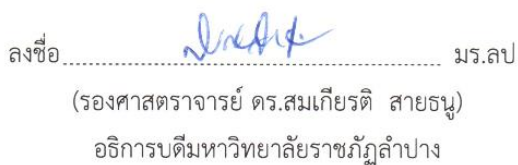 ลงชื่อ................................................ มร.ลป
(รองศาสตราจารย์ ดร.สมเกียรติ สายธนู)
อธิการบดีมหาวิทยาลัยราชภัฏลำปาง